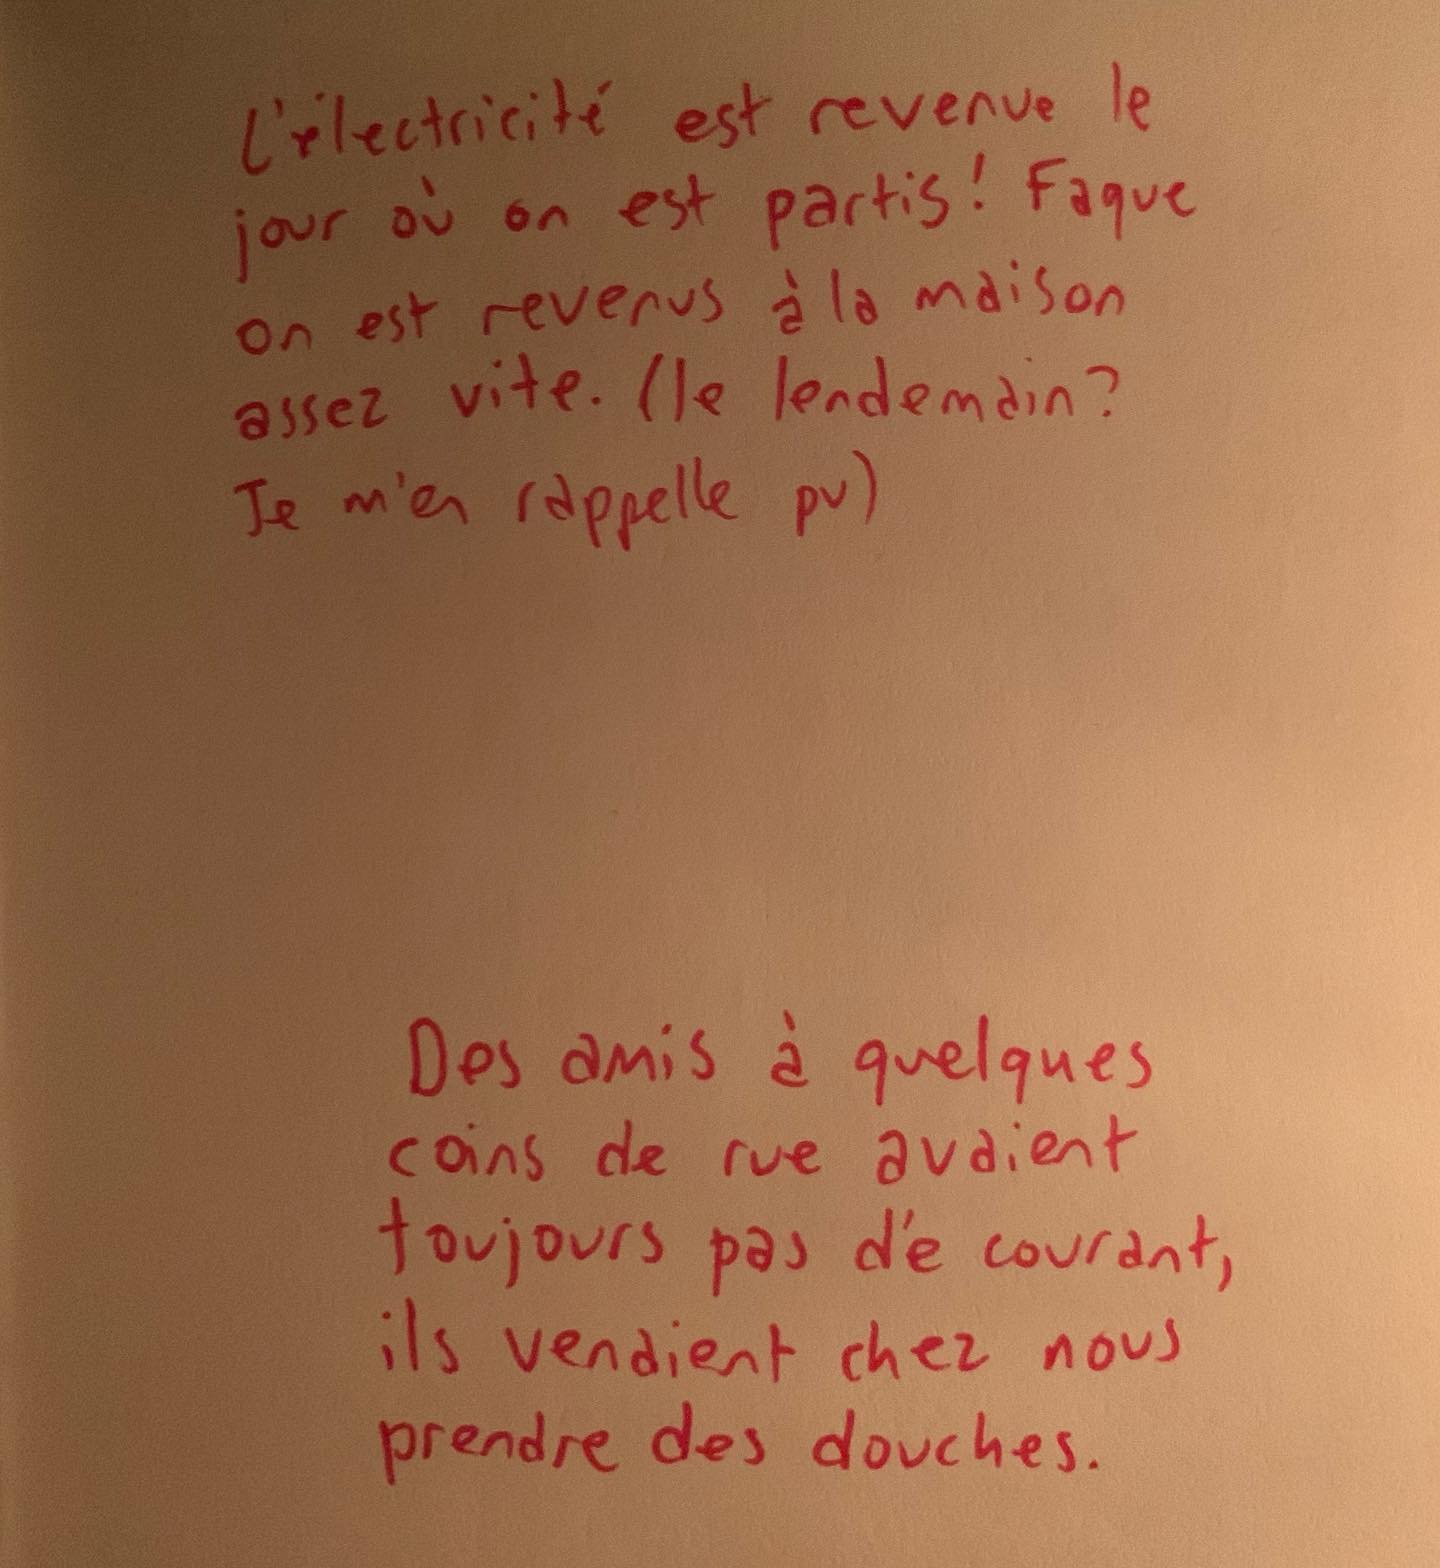 L'électricité est revenue le
jour où on est partis! Faque
on est revenus à la maison
assez vite. (le lendemain?
Je m'en rappelle pu)
Des amis à quelques
coins de rue avaient
toujours pas d'e courant,
ils venaient chez nous
prendre des douches.